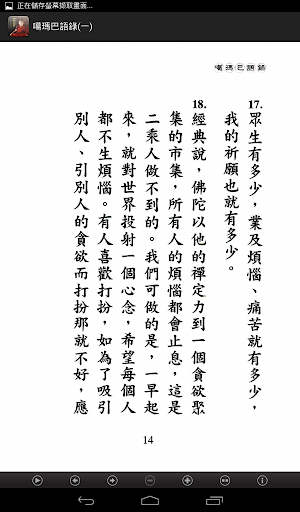 正在儲存螢幕擷取畫面...
噶瑪巴語錄(一)
噶瑪巴語錄
17.眾生有多少，業及煩惱、痛苦就有多少，
我的祈願也就有多少。
18.經典說，佛陀以他的禪定力到一個貪欲聚
集的市集，所有人的煩惱都會止息，這是
二乘人做不到的。我們可做的是，一早起
來，就對世界投射一個心念，希望每個人
都不生煩惱。有人喜歡打扮，如為了吸引
別人、引別人的貪欲而打扮那就不好，應
14